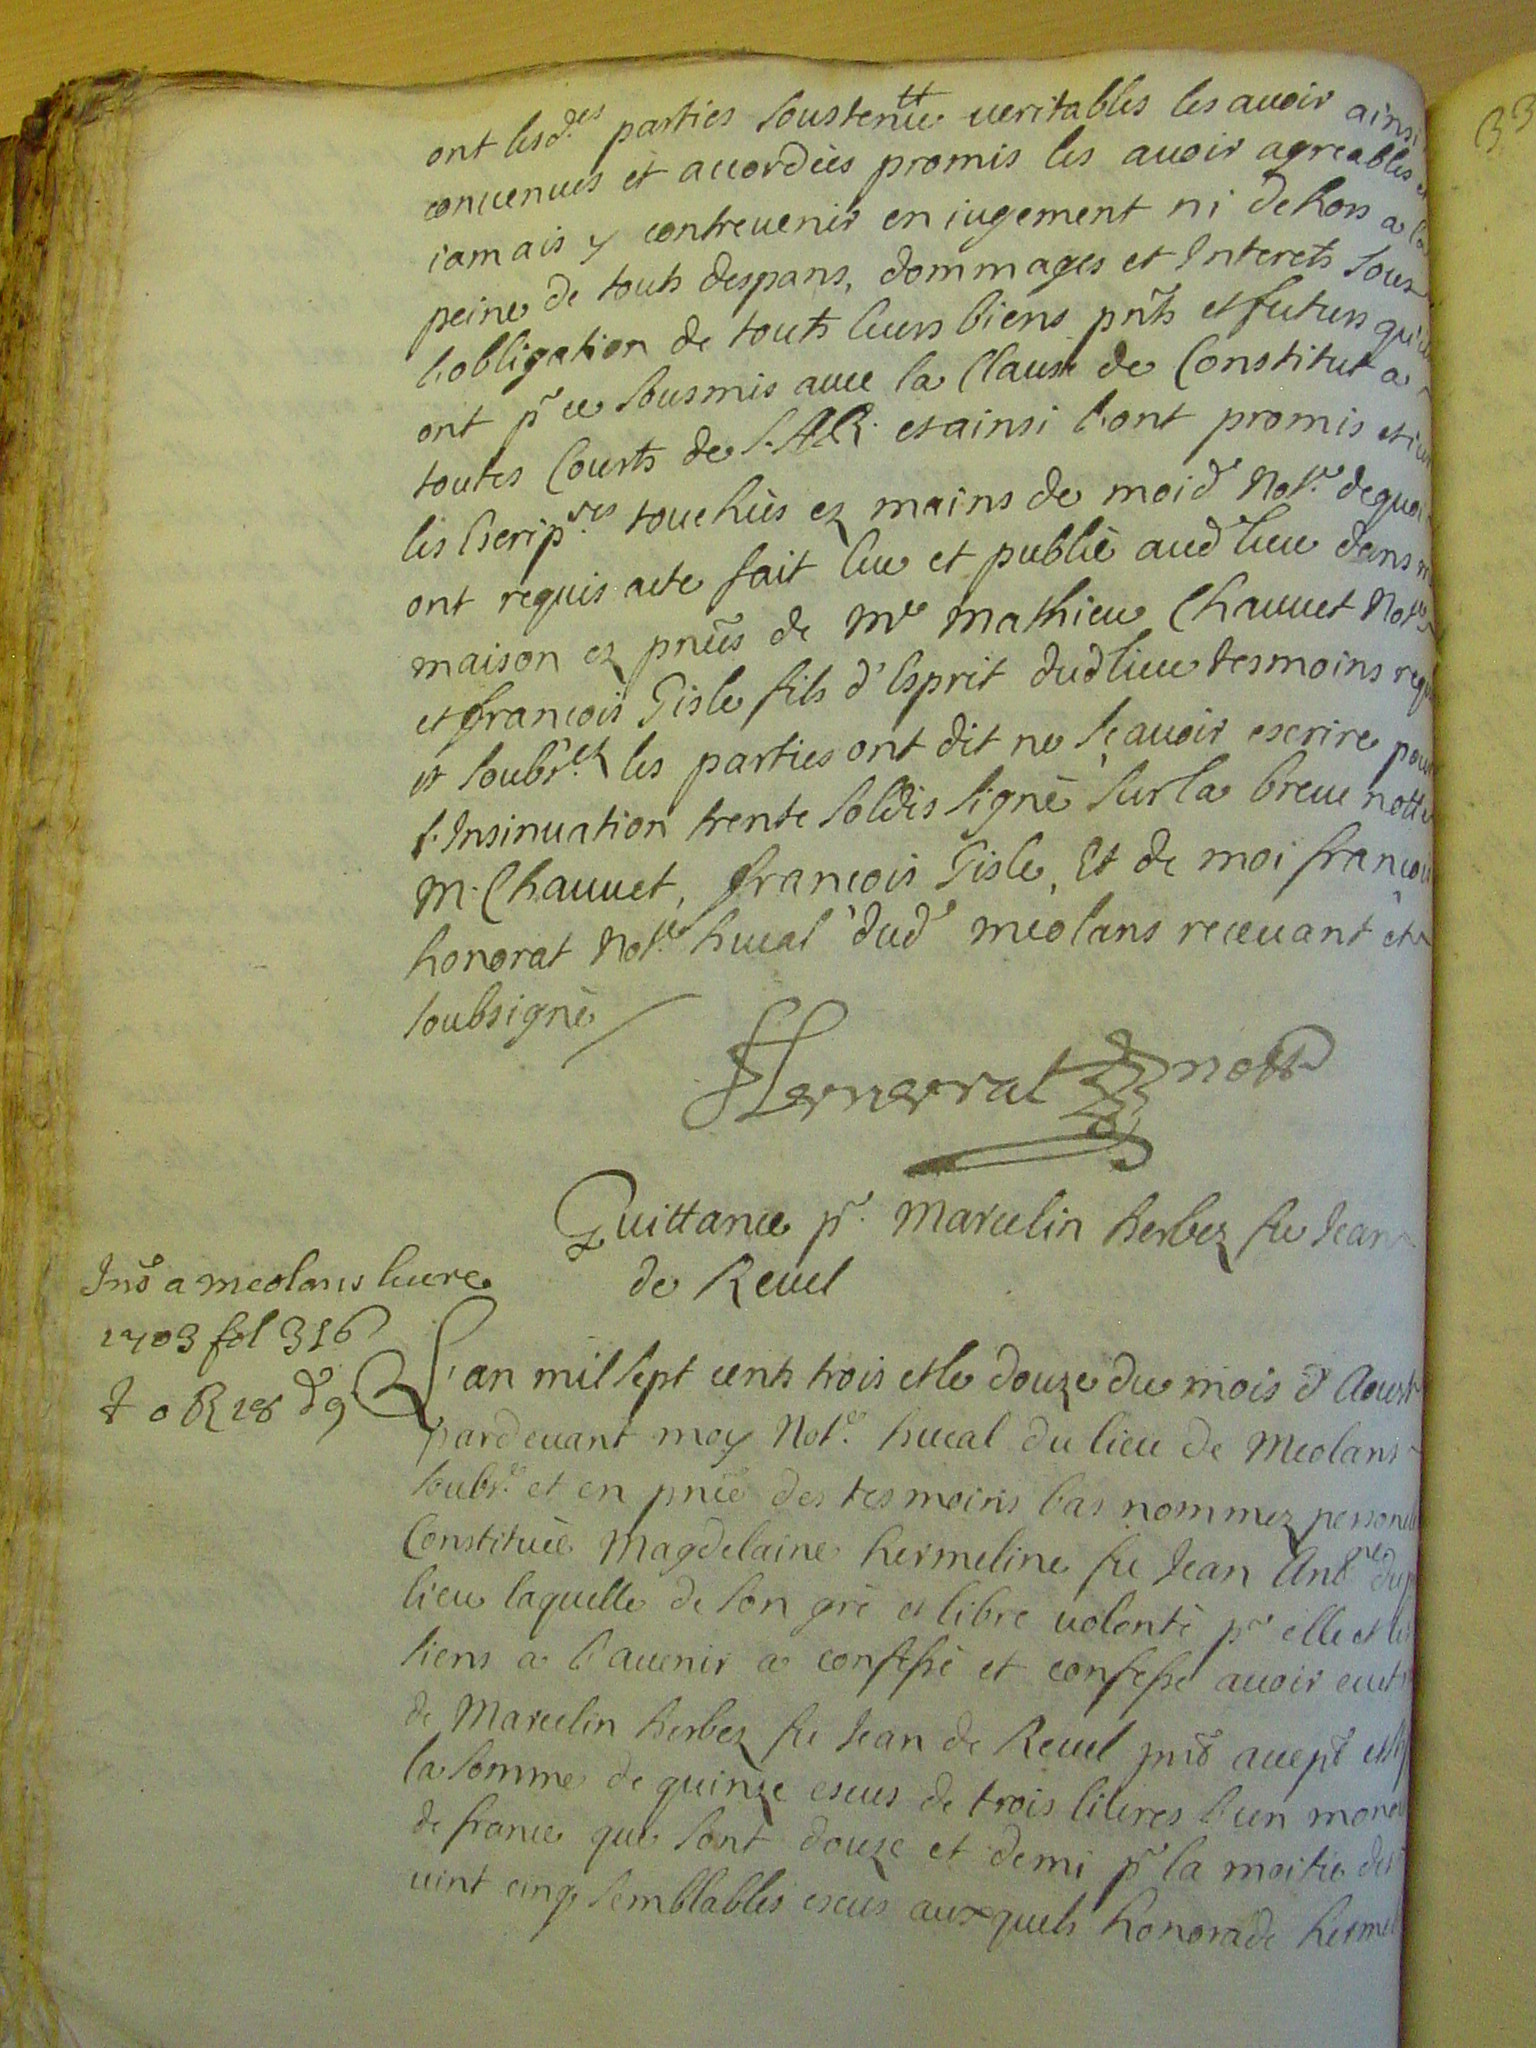 ont lesd.es parties soustenue veritables les avoir ainsi
convenues et accordées promis les avoir agreables et
iamais y contrevenir en iugement ni dehors a
peine de touts despans, dommages et Interets sous
l'obligation de touts leurs biens pnts et futurs qu'ils
ont pr ce sousmis avec la Clause de Constitut a
toutes Courts de S.A.R. et ainsi l'ont promis et
les Escripres touchées ez mains de moid Notre dequoi
ont requis acte fait leu et publié aud lieu dans
maison ez pnces de Me Mathieu Chauvet Notre
et françois Gisle fils d'Esprit dud lieu tesmoins
et soubnez les parties ont dit ne sçavoir escrire pour
l'Insinuation trente soldis signé sur la breve notte
M. Chauvet, françois Gisle, Et de moi françois
honorat Notre ducal dud meolans recevant et
soubsigné
Honnorat nottre
Quittance pr. Marcelin herbez fu Jean
de Revel
Insé a meolans livre
1703 fol 316
R 18 d 9
L'an mil sept cents trois et le douze du mois d'Aoust
pardevant moy Notre ducal du lieu de Meolans
soubné et en pnce des tesmoins bas nommez
Constituée Magdelaine hermeline fu Jean Antne
lieu laquelle de son gré et libre volonté pr elle et les
siens a l'avenir a confessé et confesse avoir eu
de Marcelin herbez fu Jean de Revel pnt accept
la somme de quinze escus de trois livres l'un
de france que sont douze et demi pr la moitié des
vint cinq semblables escus auxquels honorade